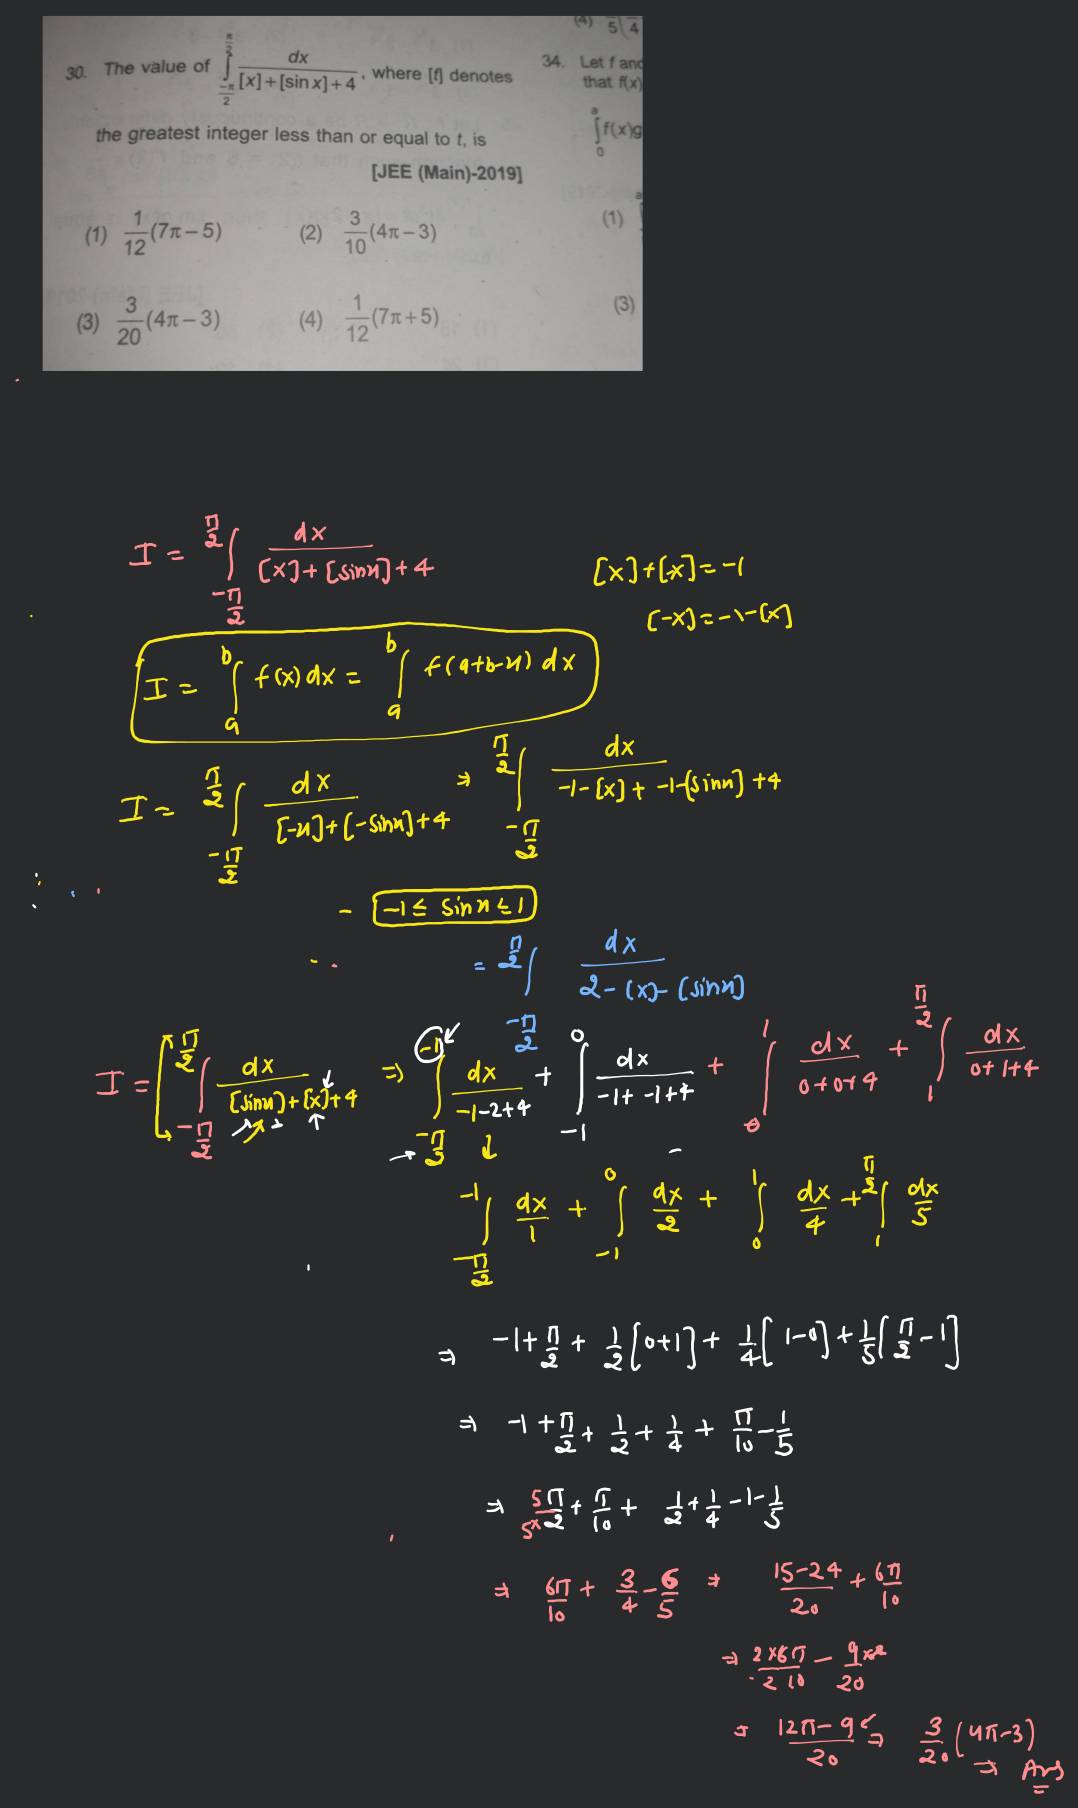 30. The value of ∫_{-π/2}^{π/2} dx/([x]+[sin x]+4), where [t] denotes
the greatest integer less than or equal to t, is
[JEE (Main)-2019]
(1) 1/12 (7π – 5) (2) 3/10 (4π – 3)
(3) 3/20 (4π – 3) (4) 1/12 (7π + 5)
(4) 5 4
34. Let f and
that f(x)
∫_0^a f(x)g
(1)
(3)
I = ∫_{-π/2}^{π/2} dx/([x]+[sinx]+4)
[x]+[-x]=-1
[-x]=-1-[x]
I = ∫_a^b f(x) dx = ∫_a^b f(a+b-x) dx
I = ∫_{-π/2}^{π/2} dx/([-x]+[-sinx]+4) ⇒ ∫_{-π/2}^{π/2} dx/(-1-[x]+-1-[sinx]+4)
- -1≤ sinx ≤1
= ∫_{-π/2}^{π/2} dx/(2-[x]-[sinx])
I = ∫_{-π/2}^{π/2} dx/([sinx]+[x]+4) ⇒ ∫_{-π/2}^{-1} dx/(-1-2+4) + ∫_{-1}^{0} dx/(-1+-1+4) + ∫_0^1 dx/(0+0+4) + ∫_1^{π/2} dx/(0+1+4)
∫_{-π/2}^{-1} dx/1 + ∫_{-1}^{0} dx/2 + ∫_0^1 dx/4 + ∫_1^{π/2} dx/5
⇒ -1+π/2 + 1/2[0+1]+ 1/4[1-0]+1/5[π/2-1]
⇒ -1+π/2+ 1/2 + 1/4 + π/10 - 1/5
⇒ 5π/5×2 + π/10 + 1/2+1/4-1-1/5
⇒ 6π/10 + 3/4 - 6/5 ⇒ (15-24)/20 + 6π/10
⇒ 2×6π/2 10 - 9/20
⇒ (12π-9)/20 ⇒ 3/20 (4π-3)
⇒ Ans